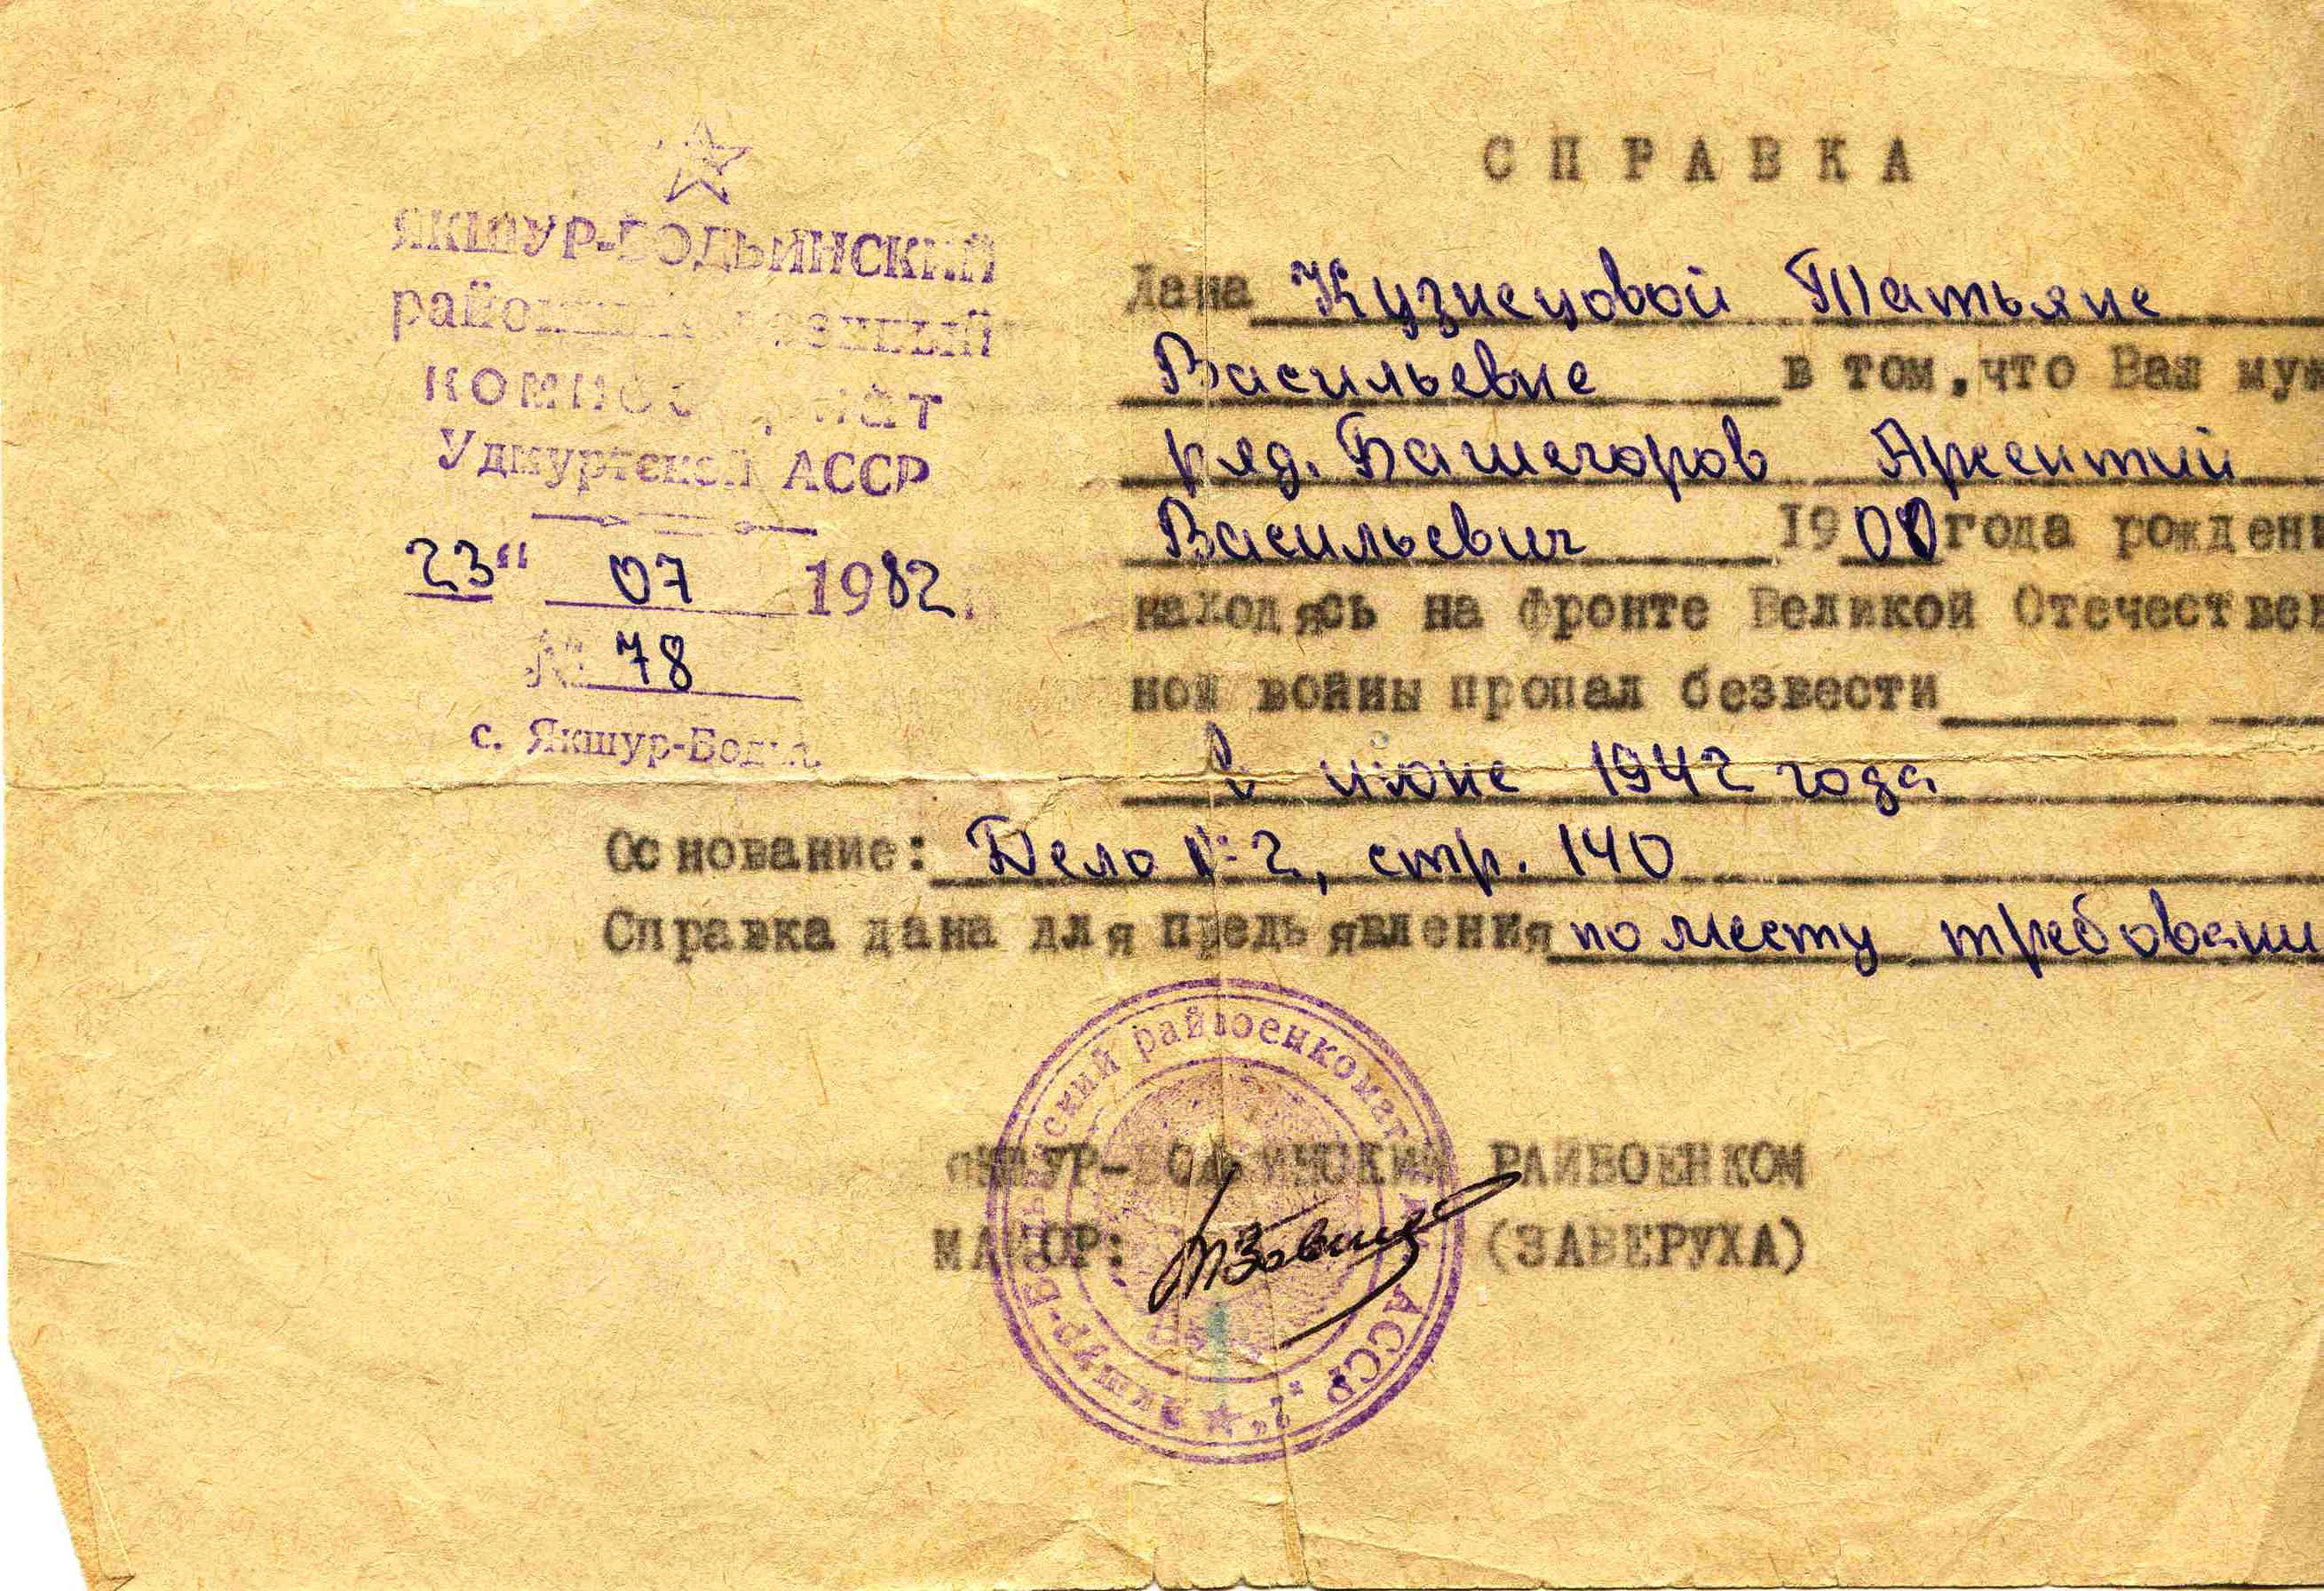 ЯКШУР-БОДЬИНСКИЙ
районный военный
комиссариат
Удмуртской АССР
23" 07 1982.
№ 78
с. Якшур-Бодья.
СПРАВКА
Дана Кузнецовой Татьяне
Васильевне в том, что Ваш муж
ряд. Башегоров Арсентий
Васильевич 1900 года рожден
находясь на фронте Великой Отечествен
ной войны пропал безвести
в июне 1942 года
Основание: Дело № 2, стр. 140
Справка дана для предъявления по месту требовани
ЯКШУР-БОДЬИНСКИЙ РАЙВОЕНКОМ
МАЙОР: (ЗАВЕРУХА)
Якшур-Бодьинский райвоенкомат АССР "2"